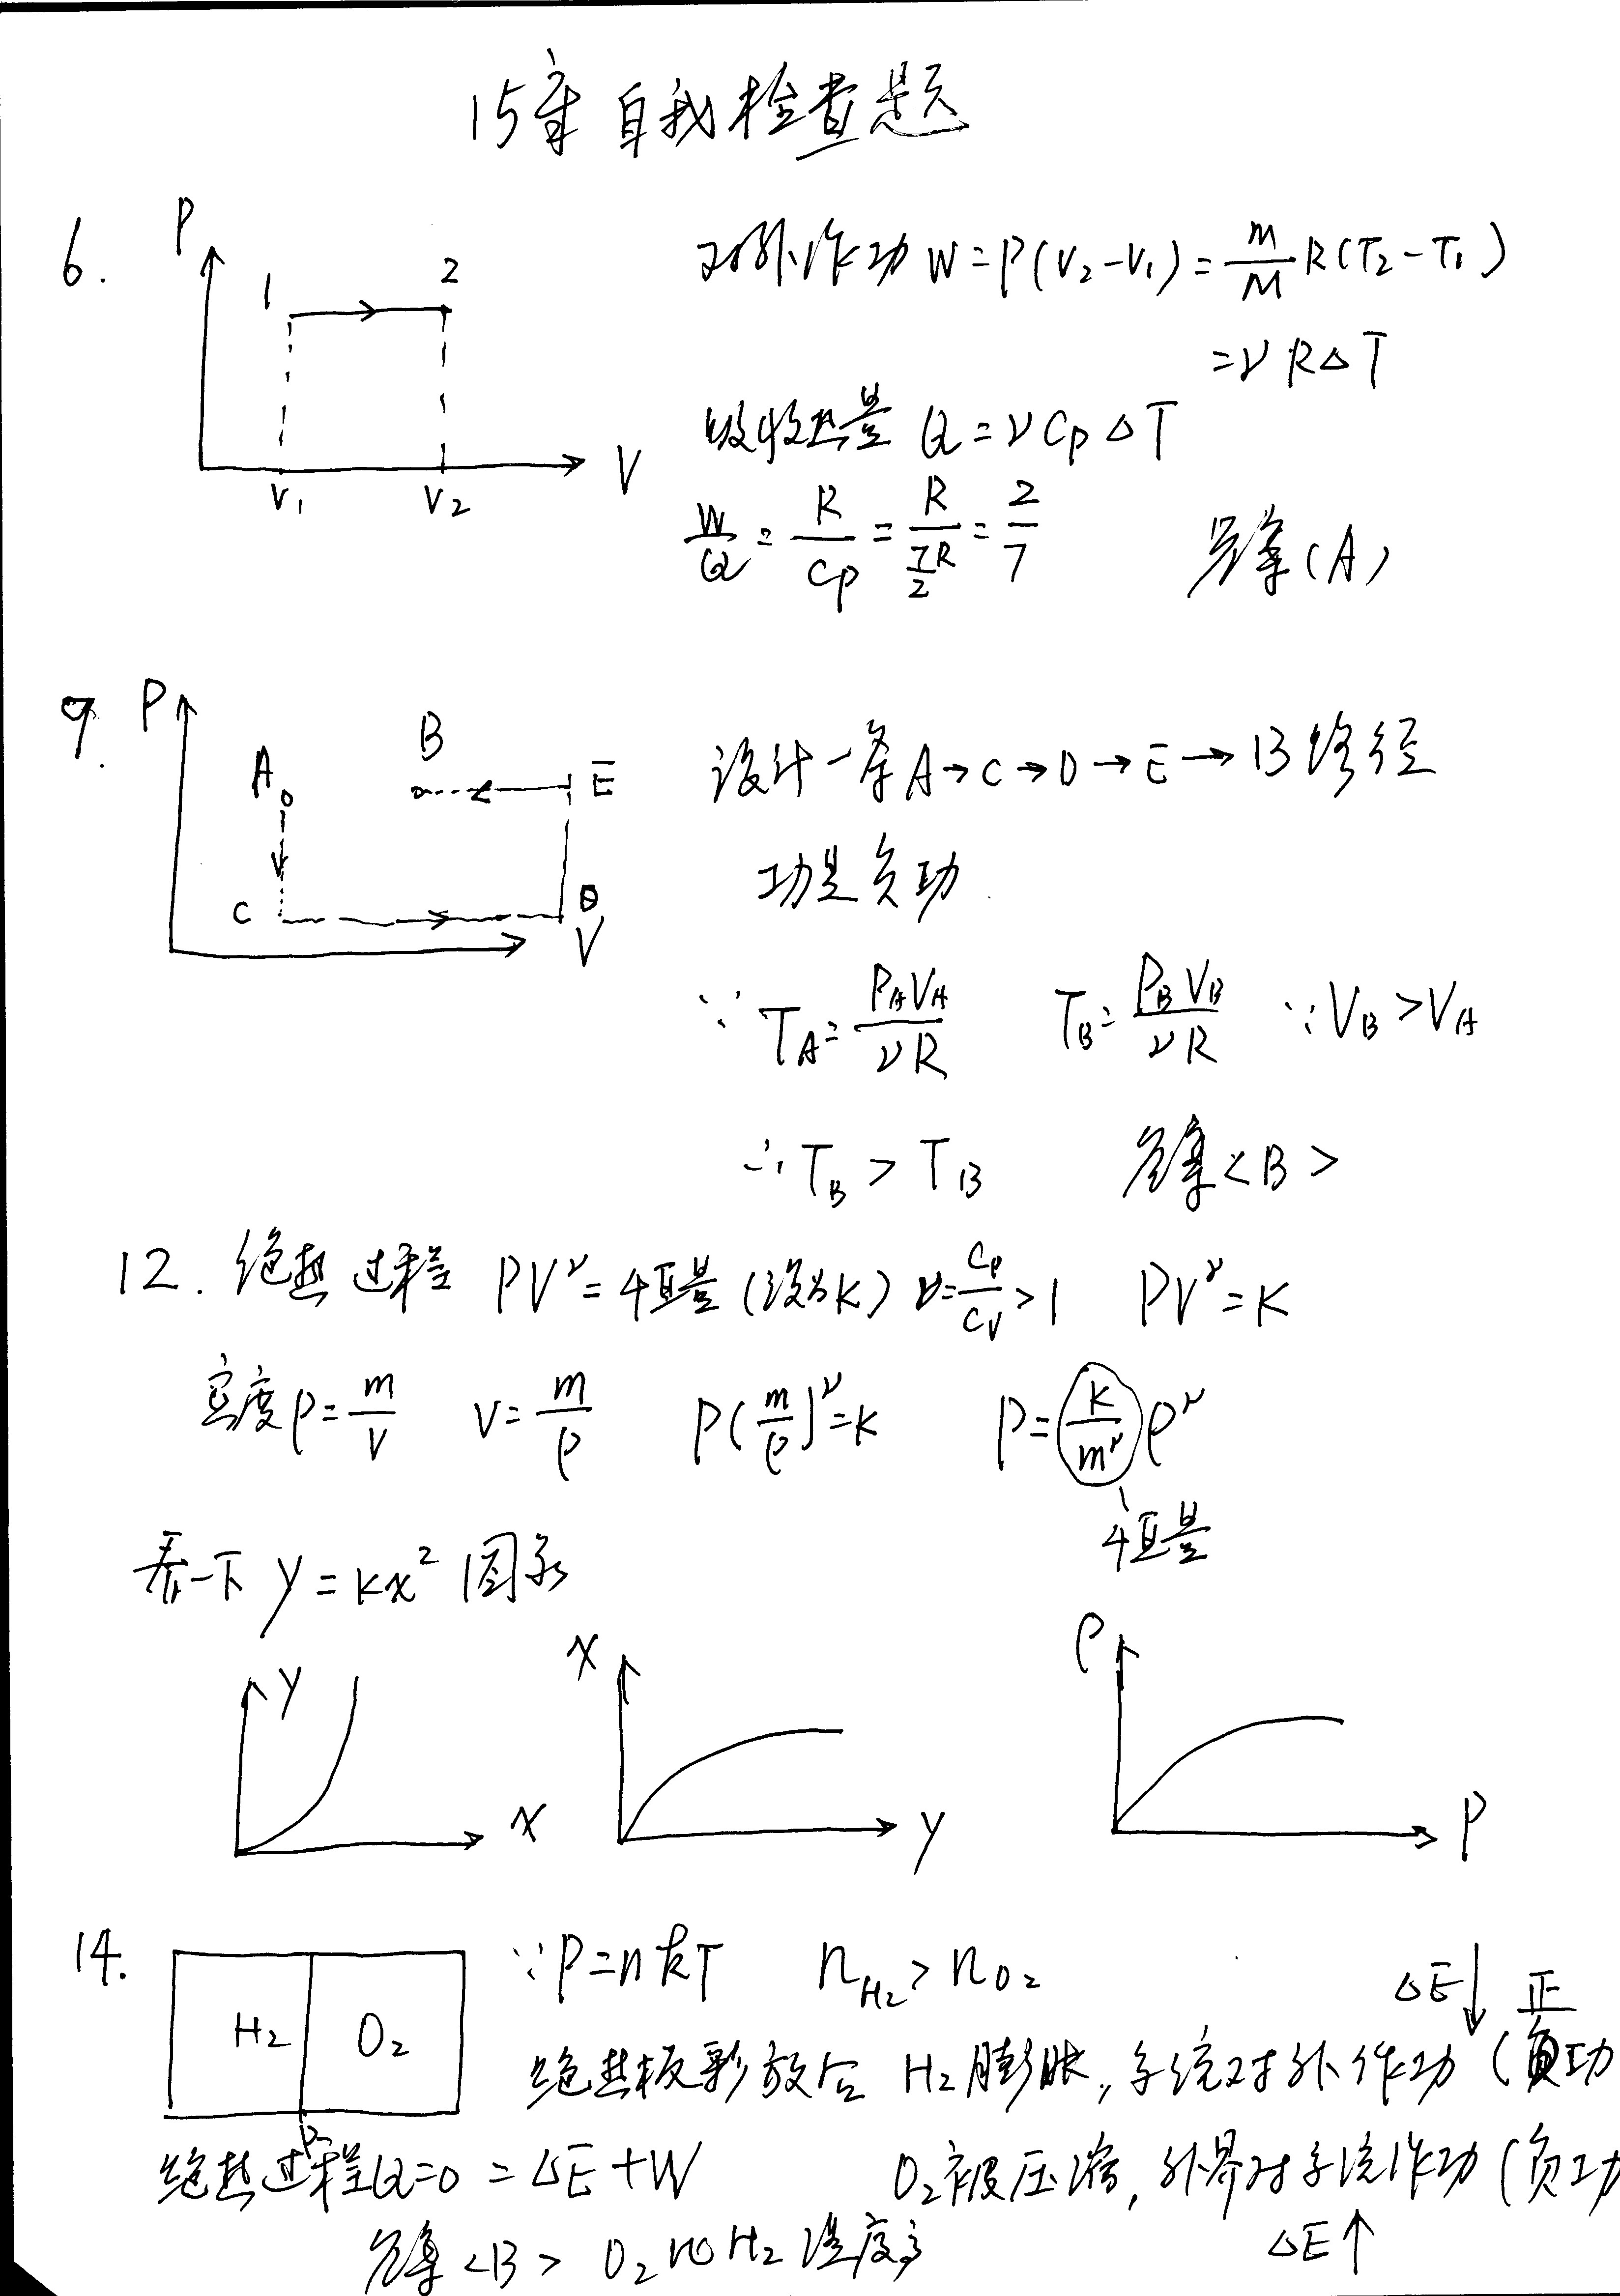 15章 自我检查题
6.
P
1 2
V₁ V₂ V
对外作功 W=P(V₂-V₁)=m/M R(T₂-T₁)
=νRΔT
吸收热量 Q=νCpΔT
W/Q=R/Cp=R/(7/2 R)=2/7 答案(A)
9.
P
A B E
C D
V
设计一条A→C→D→E→B路径
功是负功
∵ T_A=P_A V_A/νR T_B=P_B V_B/νR ∵V_B>V_A
∴T_B>T_B 答案<B>
12. 绝热过程 PV^γ=恒量(设为K) γ=Cp/Cv>1 PV^γ=K
密度ρ=m/V V=m/ρ P(m/ρ)^γ=K P=(K/m^γ)ρ^γ
恒量
看一下 y=kx² 图形
y x
x y
ρ P
14.
H₂ O₂
∵P=nkT n_H₂>n_O₂ ΔE↓ 正
绝热板释放后 H₂膨胀,系统对外作功(功
绝热过程Q=0=ΔE+W O₂被压缩,外界对系统作功(负功
答案<B> O₂比H₂温度高 ΔE↑